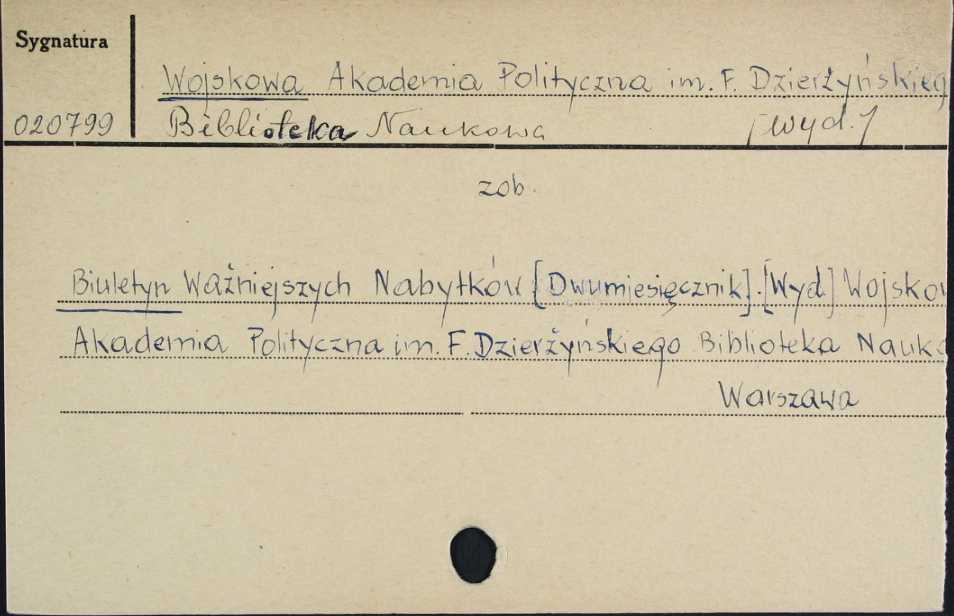 Sygnatura
Wojskowa Akademia Polityczna im. F. Dzierżyńskieg
020799 Biblioteka Naukowa [wyd.]
zob.
Biuletyn Ważniejszych Nabytków [Dwumiesięcznik]. [Wyd] Wojskow
Akademia Polityczna im. F. Dzierżyńskiego Biblioteka Nauko
Warszawa